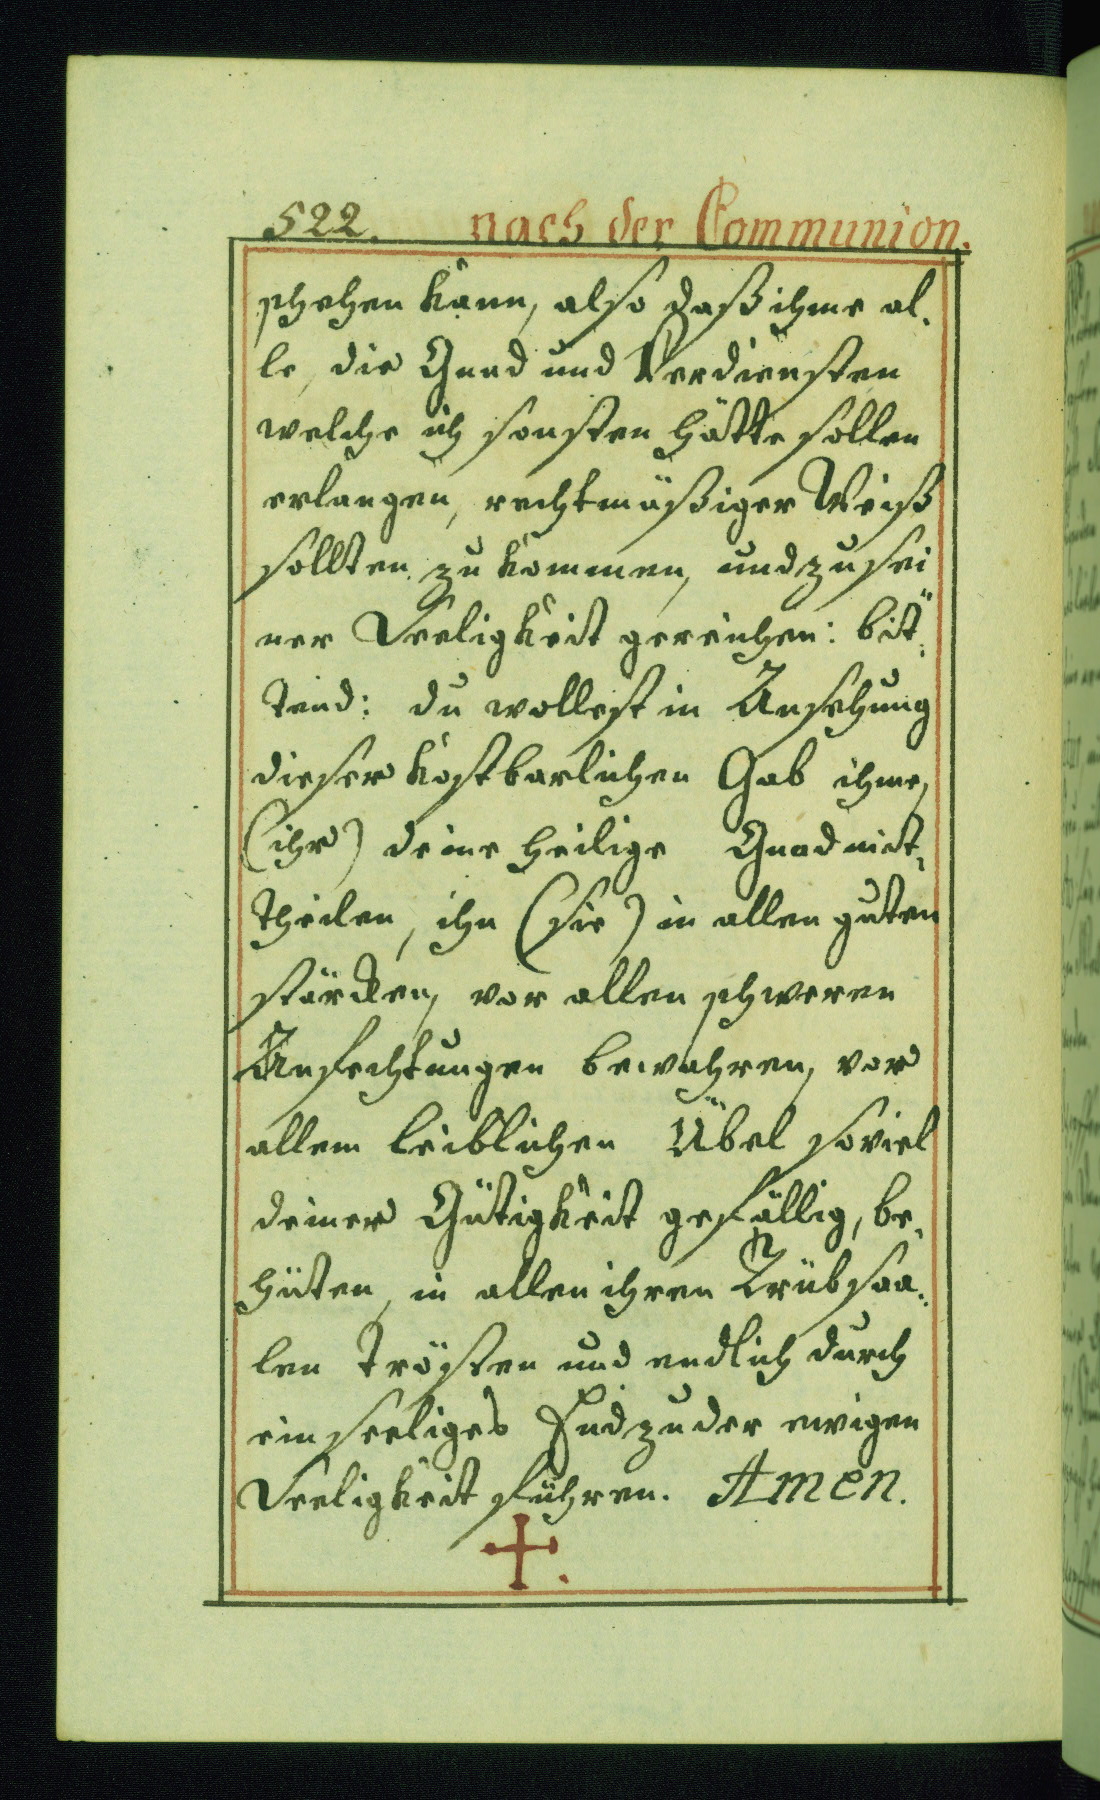 522. nach der Communion.
schehen kann, also daß ihme al,
le, die Gnad und Verdiensten
welche ich sonsten hätte sollen
erlangen, rechtmäßiger Weiß
sollten zu kommen, und zu sei
ner Seeligkeit gereichen: bit,
tend: du wollest in Ansehung
dieser kostbarlichen Gab ihme,
(ihr) deine heilige Gnad mit,
theilen, ihn (sie) in allen guten
stärcken, vor allen schweren
Anfechtungen bewahren, vor
allem leiblichen Übel soviel
deiner Gütigkeit gefällig, be,
hüten, in allen ihren Trübsaa,
len trösten und endlich durch
ein seeliges End zu der ewigen
Seeligkeit führen. Amen.